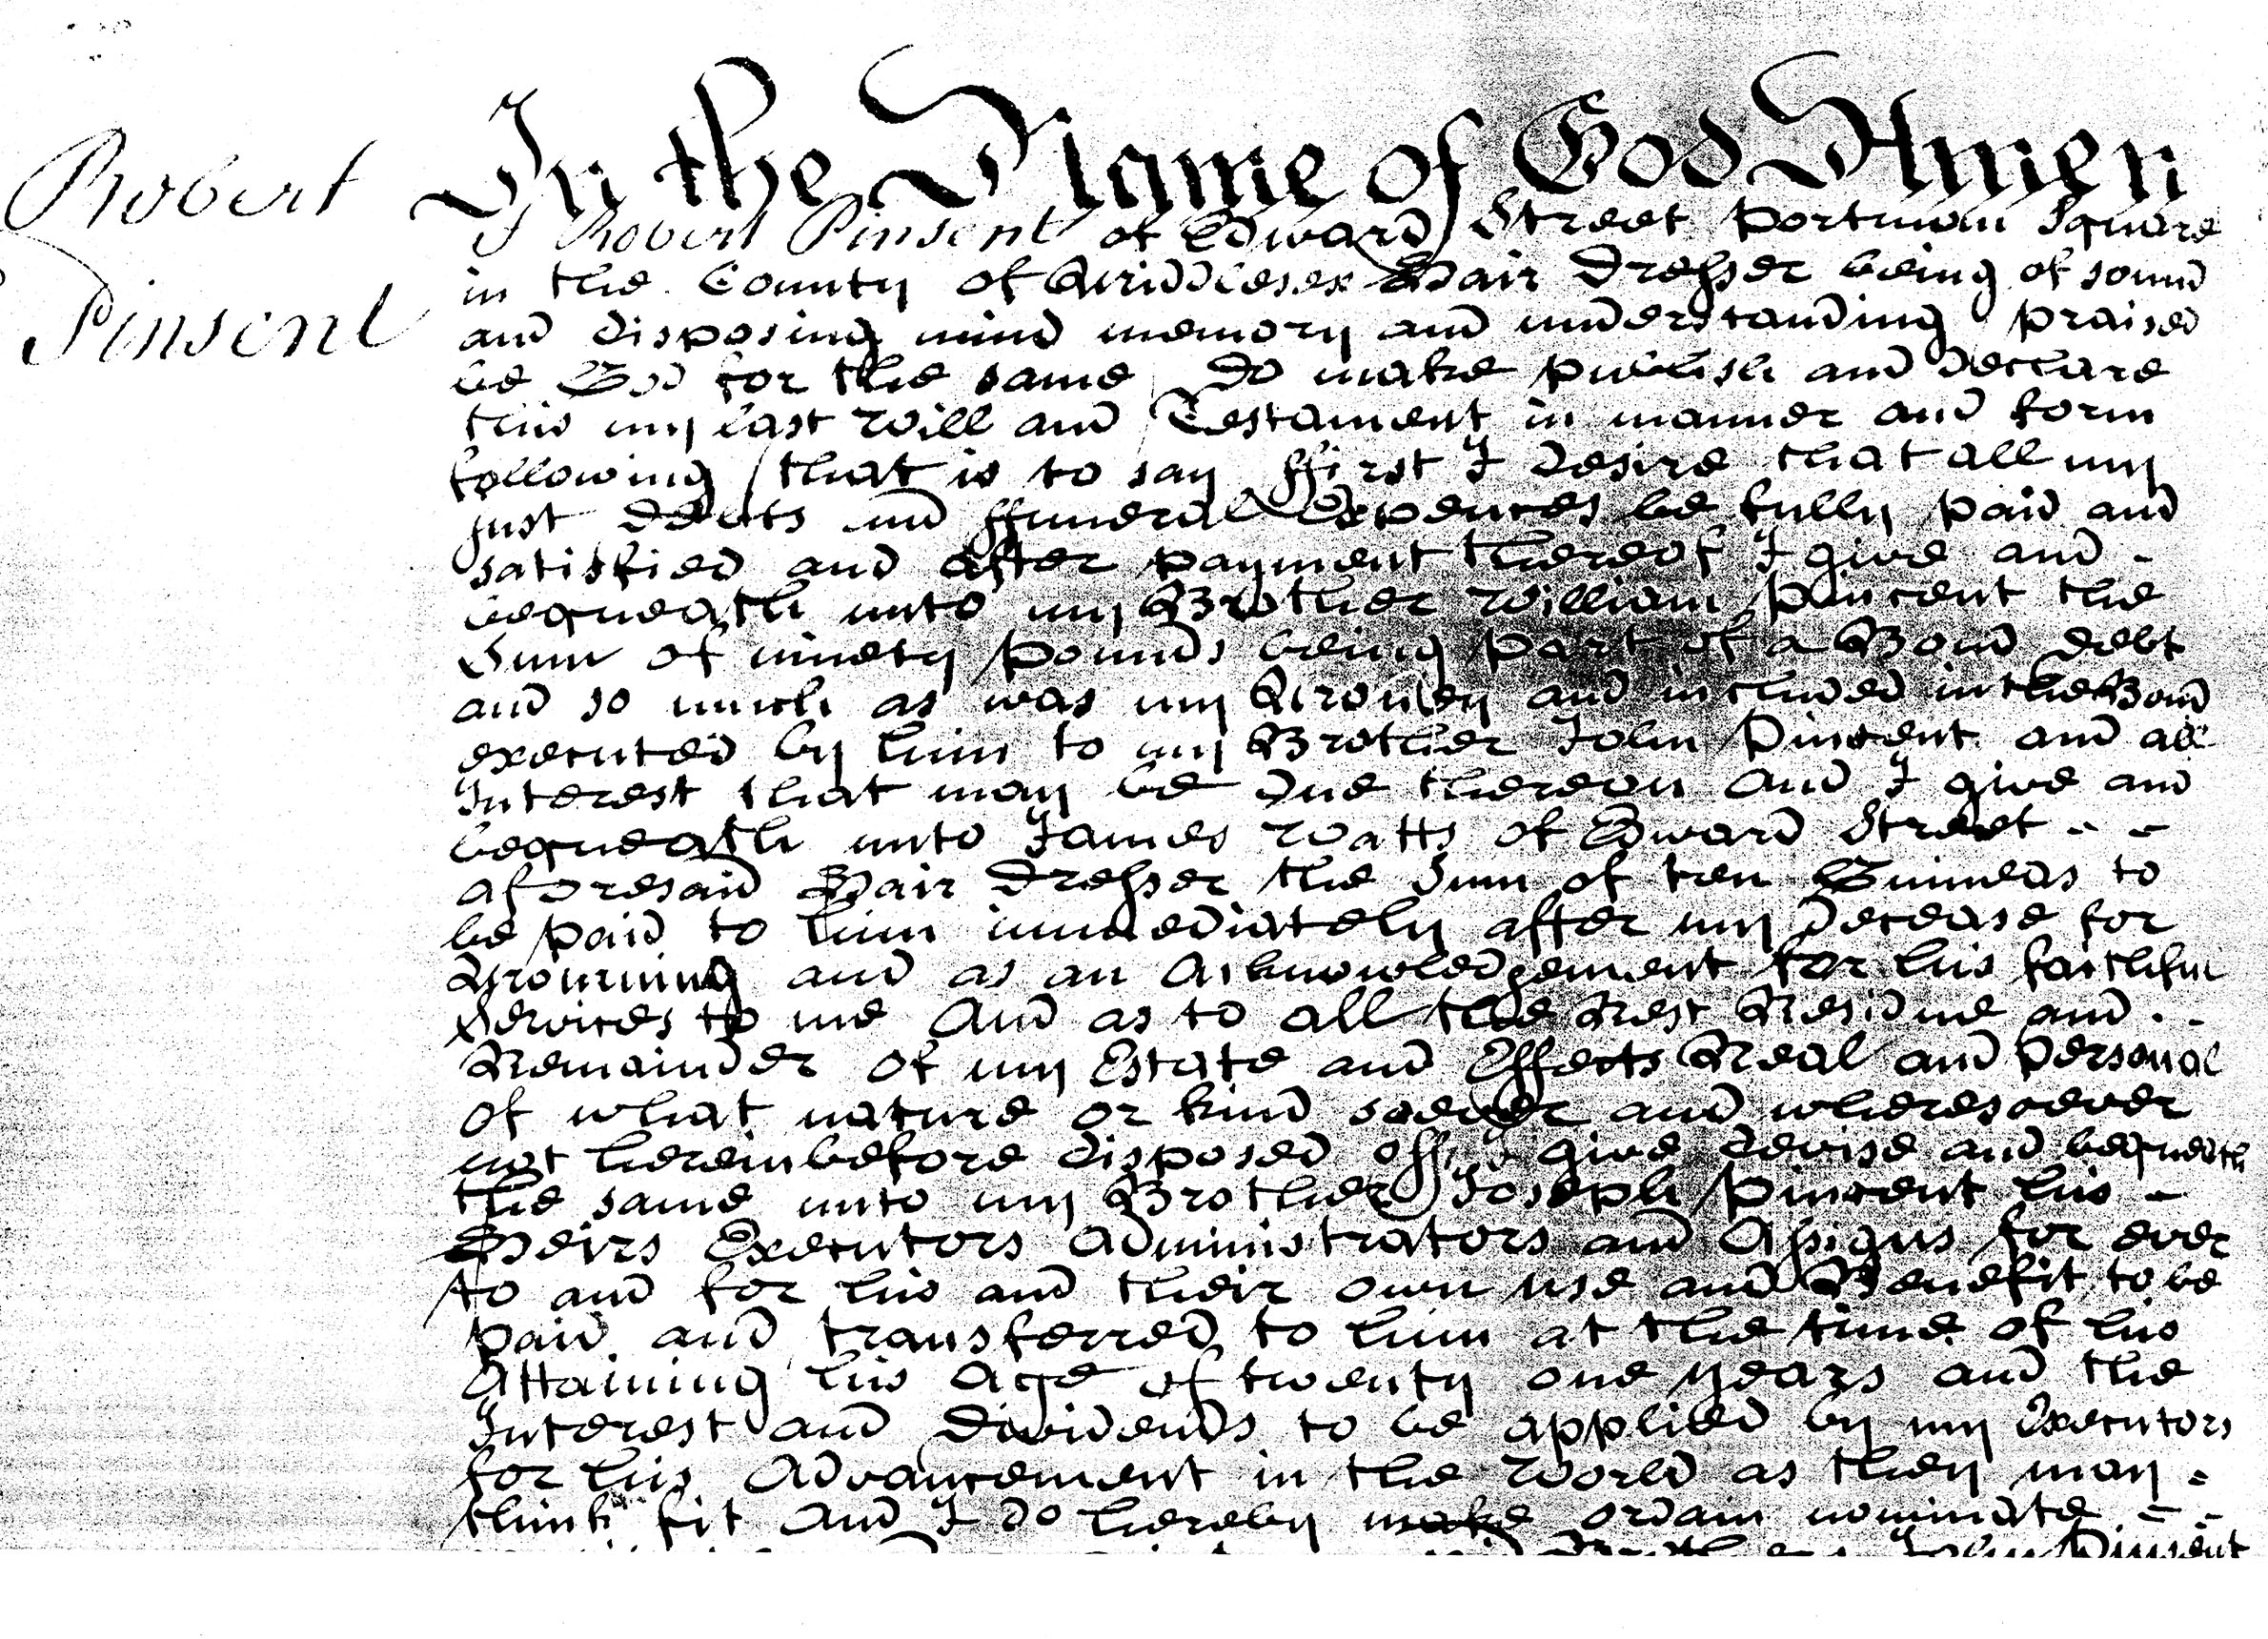 Robert
Pinsent
In the Name of God Amen
I Robert Pinsent of Edward Street Portman Square
in the County of Middlesex Hair Dresser being of sound
and disposing mind memory and understanding praised
be God for the same do make publish and declare
this my last Will and Testament in manner and form
following that is to say ffirst I desire that all my
just debts and ffuneral Expences be fully paid and
satisfied and after payment thereof I give and -
bequeath unto my Brother William Pincent the
Sum of ninety pounds being part of a Bond debt
and so much as was my Money and included in the Bond
executed by him to my Brother John Pincent and all
Interest that may be due thereon And I give and
bequeath unto James Watts of Edward Street - -
aforesaid Hair Dresser the Sum of ten Guineas to
be paid to him immediately after my decease for
Mourning and as an Acknowledgement for his faithful
Services to me And as to all the Rest Residue and - -
Remainder of my Estate and Effects Real and personal
of what nature or kind soever and wheresoever
not hereinbefore disposed off I give devise and bequeath
the same unto my Brother Joseph Pincent his -
Heirs Executors Administrators and Assigns for ever
to and for his and their own use and Benefit to be
paid and transferred to him at the time of his
Attaining his Age of twenty one years and the
Interest and Dividends to be applied by my Executors
for his Advancement in the World as they may -
think fit And I do hereby make ordain nominate - -
John Pinsent